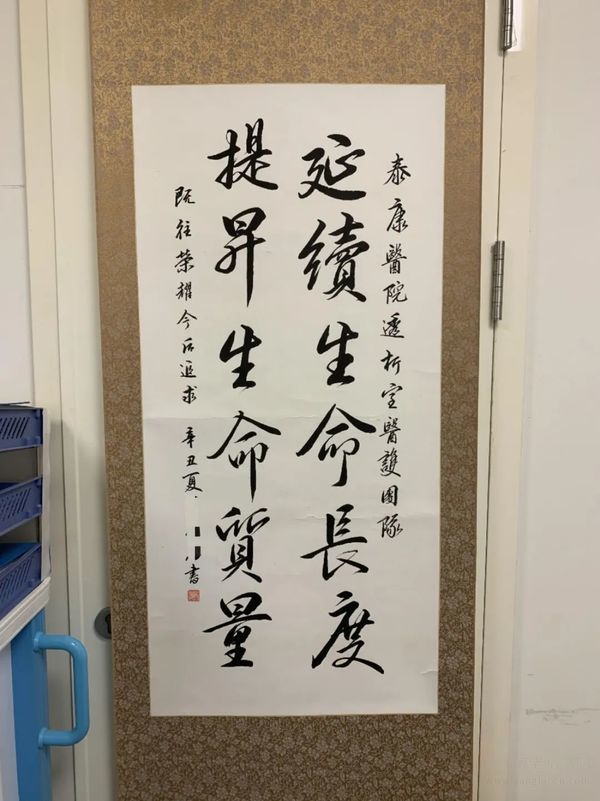 泰康醫院透析室醫護團隊
延續生命長度
提昇生命質量
既往榮耀今后追求 辛丑夏
書